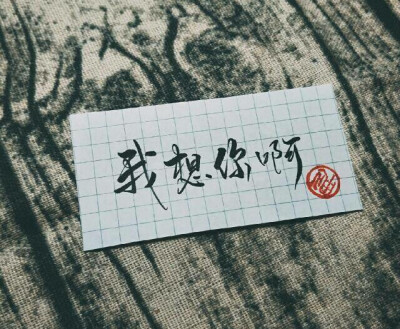 我想你啊